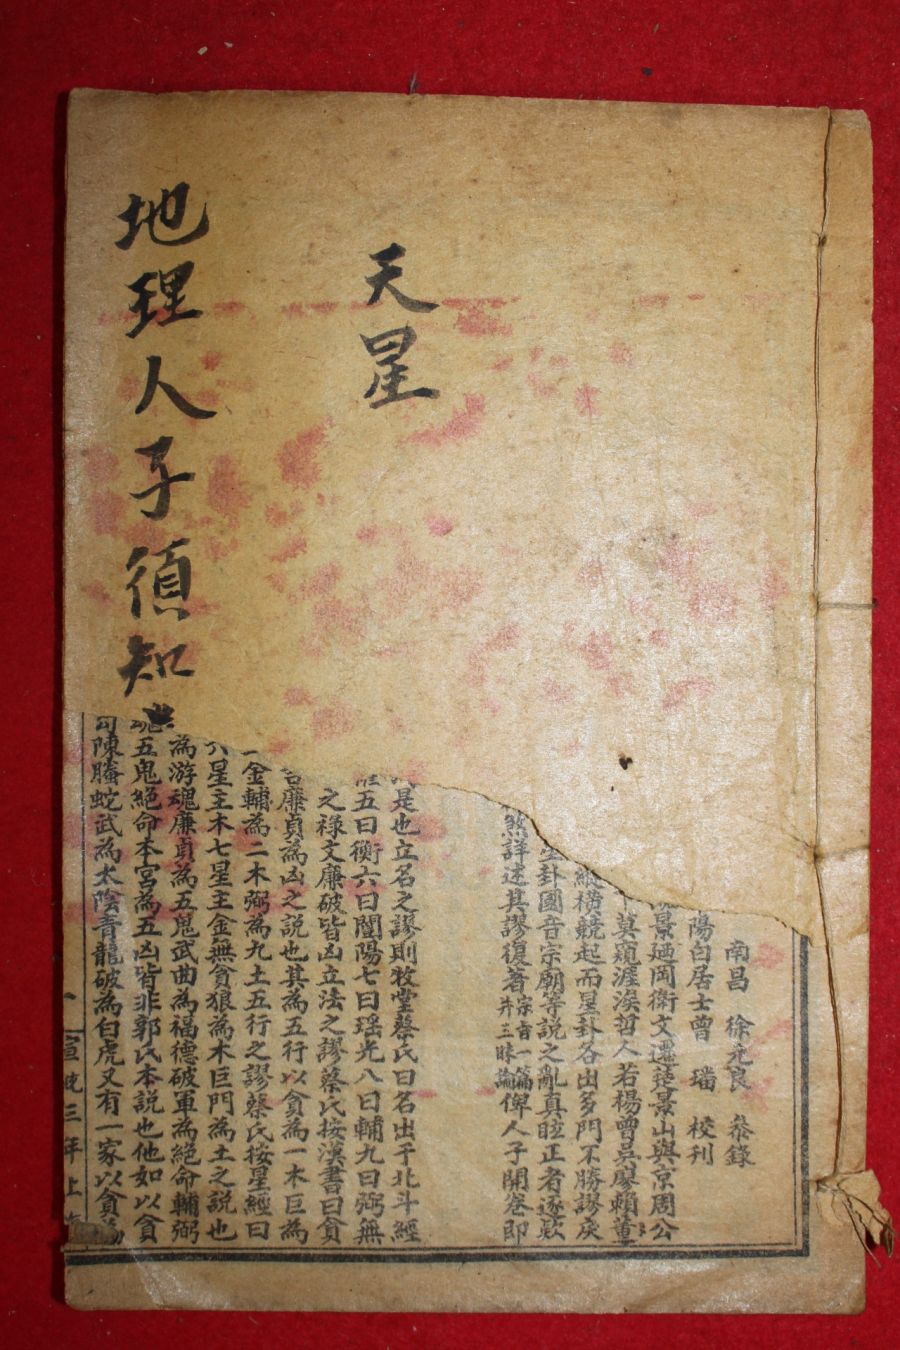 天星
地理人子須知
南昌 徐克良 叅錄
陽白居士曾 璠 校刊
景廼岡衛文遷楚景山與京周公
莫窺涯涘哲人若楊曾吳廖賴董
縱橫競起而星卦各出多門不勝謬戾
卦國音宗廟等說之亂真眩正者逐欵
煞詳述其謬復著宗言一篇并三昧論俾人子開卷即
是也立名之謬則牧堂蔡氏曰名出于北斗經
五曰衡六曰闓陽七曰瑤光八曰輔九曰弼無
之祿文廉破皆凶立法之謬蔡氏按漢書曰貪
廉貞為凶之說也其為五行以貪為一木巨為
金輔為二木弼為九土五行之謬蔡氏按星經曰
六星主木七星主金無貪狼為木巨門為土之說也
為游魂廉貞為五鬼武曲為福德破軍為絕命輔弼
五鬼絕命本宮為五凶皆非郭氏本說也他如以貪
陳螣蛇武為太陰青龍破為白虎又有一家以貪為
宣統三年上